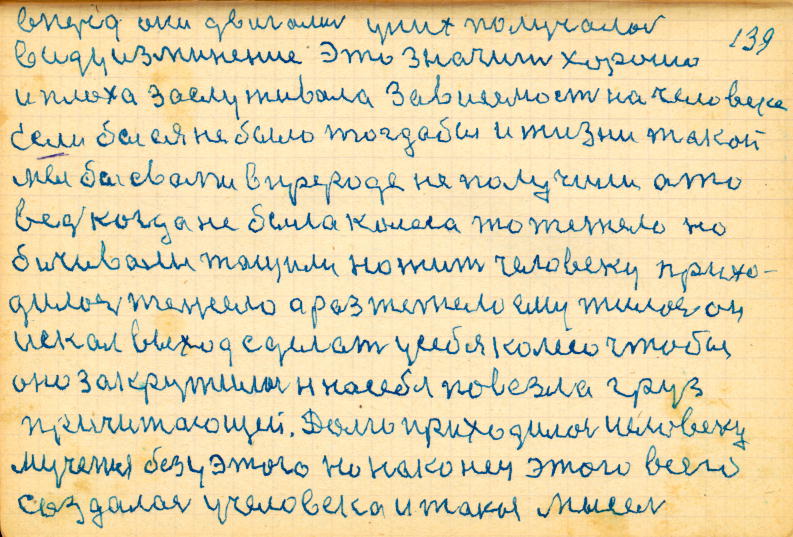 вперёд они двигались уних получалос
виду изминение Это значит хорошо
139
и плоха заслуживала Зависемост на человека
Если бысяя не было тогдабы и жизни такой
мы бы свами в природе не получили а то
вед когда не была колеса то тежело но
бичивали тащили но жит человеку прихо-
дилос тежело а раз тежело ему жилос он
искал выход сделат усебя колесо чтобы
оно закружилос и на себя повезла груз
причитающей. Долго приходилос человеку
мучется безу этого но наконец этого всего
создалос у человека и такая мысел